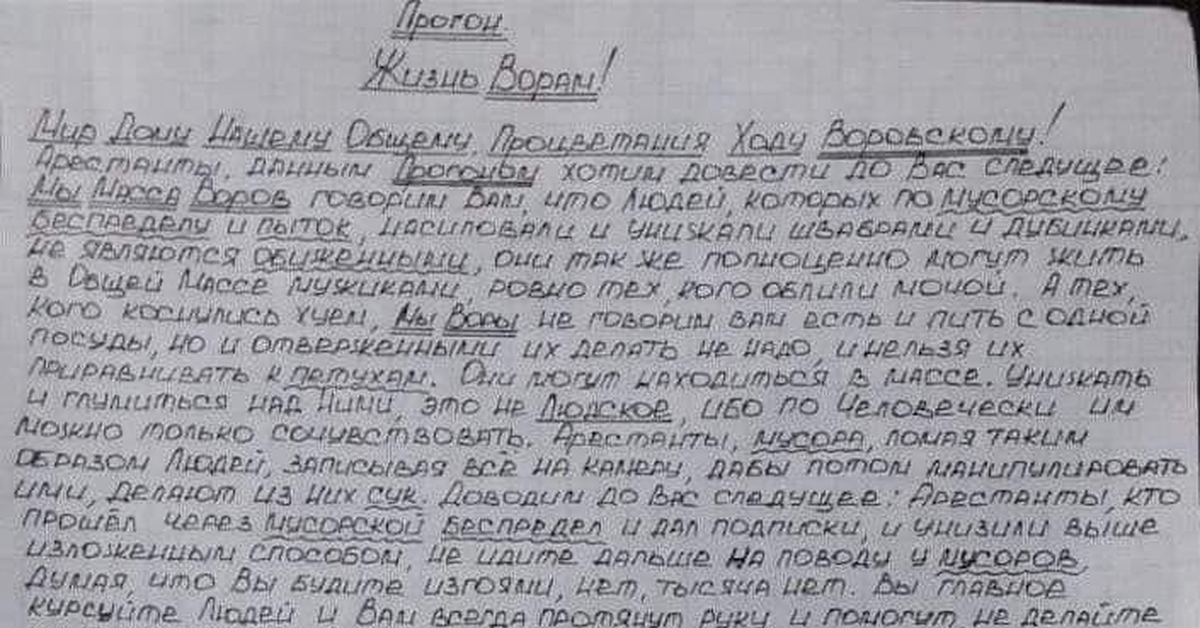 Прогон.
Жизнь Ворам!
Мир Дому Нашему Общему. Процветания Ходу Воровскому!
Арестанты, данным Прогоном хотим довести до Вас следущее:
Мы Масса Воров говорим Вам, что Людей, которых по мусорскому
беспределу и пыток, насиловали и унижали швабрами и дубинками,
не являются обиженными, они так же полноценно могут жить
в Общей Массе мужиками, ровно тех, кого облили мочой. А тех,
кого коснулись хуем, Мы Воры не говорим вам есть и пить с одной
посуды, но и отверженными их делать не надо, и нельзя их
приравнивать к петухам. Они могут находиться в массе. Унижать
и глумиться над ними, это не Людское, ибо по Человечески им
можно только сочувствовать. Арестанты, мусора, ломая таким
образом Людей, записывая всё на камеру, дабы потом манипулировать
ими, делают из них сук. Доводим до Вас следущее: Арестанты, кто
прошёл через мусорской беспредел и дал подписки, и унизили выше
изложенным способом, не идите дальше на поводу у мусоров,
думая, что Вы будите изгоями, нет, тысяча нет. Вы главное
курсуйте Людей и Вам всегда протянут руки и помогут, не делайте